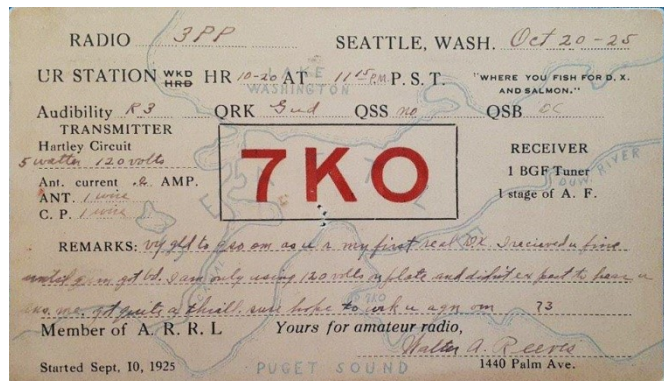 RADIO 3PP SEATTLE, WASH. Oct 20-25
UR STATION WKD HRD HR 10-20 AT 11 15 P.M. P. S. T. "WHERE YOU FISH FOR D. X. AND SALMON."
LAKE WASHINGTON
Audibility R3 QRK Gud QSS no QSB DC
TRANSMITTER
Hartley Circuit
5 watter 120 volts
Ant. current .2 AMP.
ANT. 1 wire
C. P. 1 wire
7KO
RECEIVER
1 BGF Tuner
1 stage of A. F.
RIVER
REMARKS: vy gld to c so om as u r my first real DX. I recieved u fine
until qrm got bd. I am only using 120 volts on plate and didnt expect to hear u
ans. me. got quite a thrill. sure hope to wrk u agn om 73
Member of A. R. R. L Yours for amateur radio,
Walter A. Reeves
Started Sept. 10, 1925 PUGET SOUND 1440 Palm Ave.